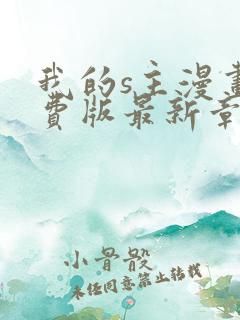 我的s主漫畫
費版最新章
小骨骰
未经同意禁止转载